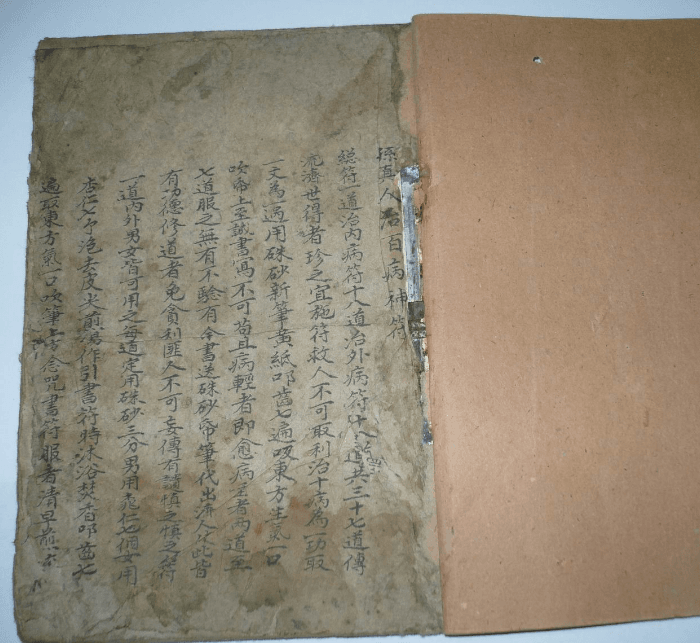 孫真人治百病神符
總符一道治內病符十八道治外病符十八道共三十七道傳
流濟世得者珍之宜施符救人不可取利治十病為一功取
一文為一過用硃砂新筆黃紙叩齒七遍吸東方生氣一口
吹帋上至誠書寫不可苟且病輕者即愈病至者两道
七道服之無有不驗有令書送硃砂帋筆代出流人此皆
有功德修道者免貪利匪人不可妄傳有慎之慎之符
一道內外男女皆可用之每道定用硃砂三分男用桃仁七個女用
杏仁七个泡去皮尖煎湯作引書符時沐浴焚香叩齒七
遍取東方氣一口吹筆上方念咒書符服者清早煎